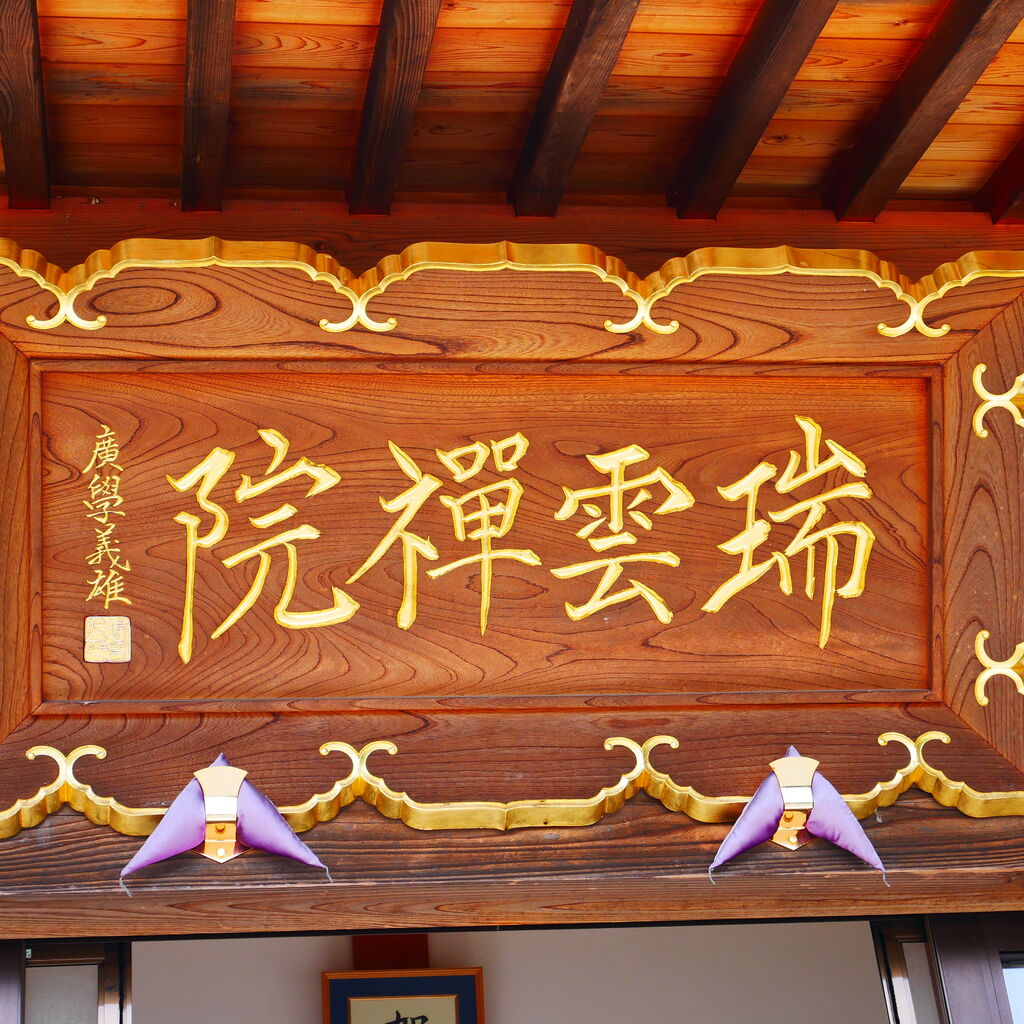 瑞雲禪院
廣學義雄